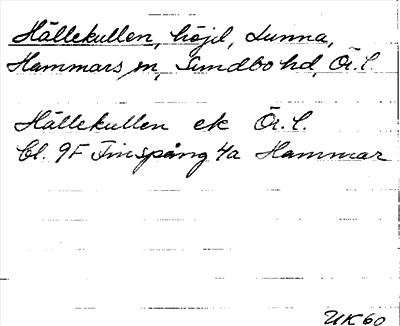 Hällekullen, höjd, Lunna,
Hammars sn, Sundbo hd, Ör. l.
Hällekullen ek Ör. l.
Bl. 9F Finspång 4a Hammar
UK60